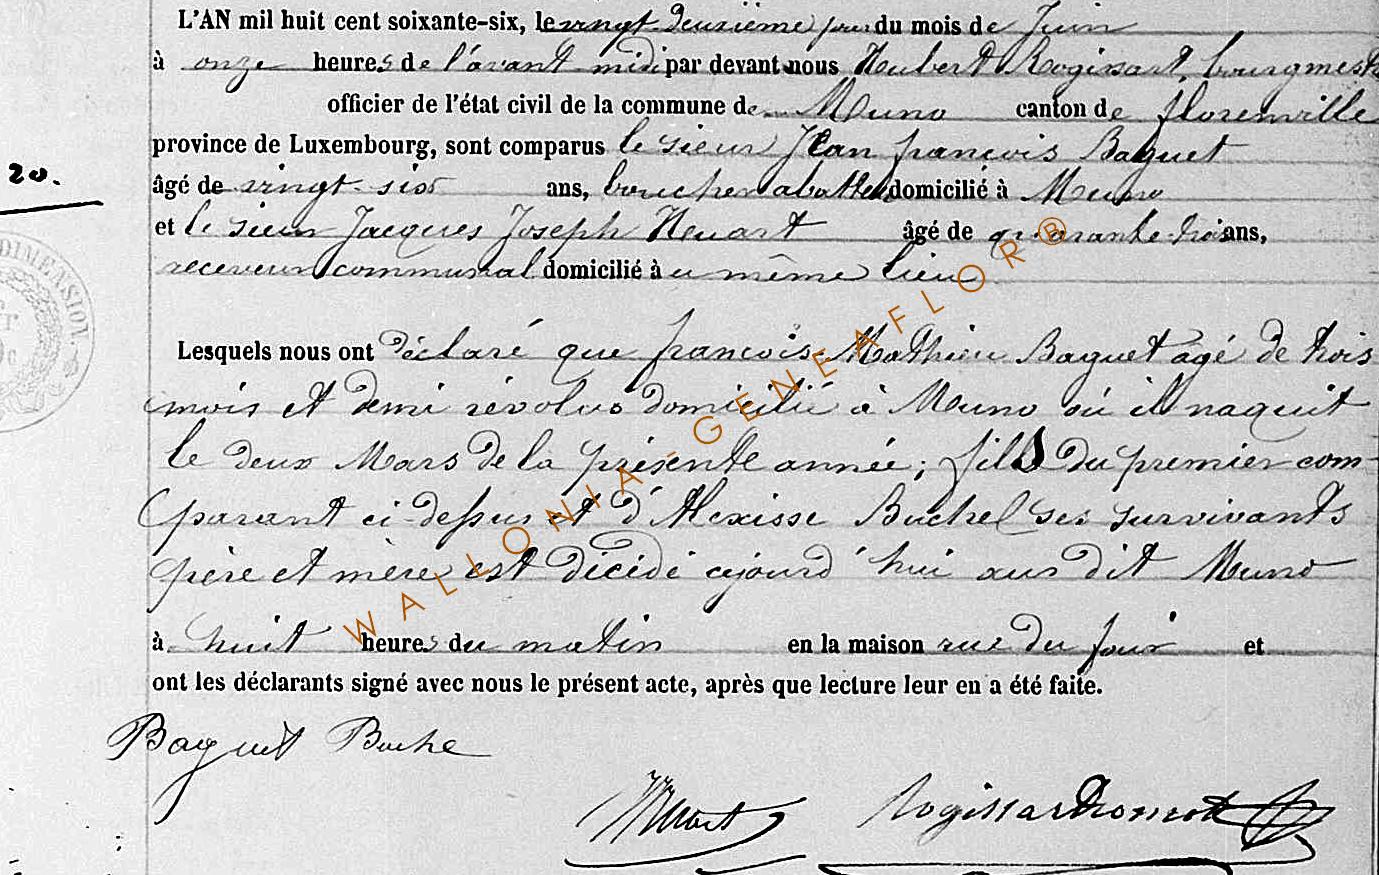 L'AN mil huit cent soixante-six, le vingt deuxième jour du mois de Juin
à onze heures de l'avant midi par devant nous Hubert Rogissart, bourgmest
officier de l'état civil de la commune de Muno canton de florenville
province de Luxembourg, sont comparus le sieur Jean francois Baguet
20.
âgé de vingt-six ans, domicilié à Muno
et le sieur Jacques Joseph Huart âgé de quarante-trois ans,
receveur communal domicilié à u même lieu
Lesquels nous ont déclaré que francois Mathieu Baguet agé de trois
mois et demi révolus domicilié à Muno où il naquit
le deux Mars de la présente année; fils du premier com-
parant ci-dessus et d'Alexisse Buchel ses survivants
père et mère est décédé cejourd'hui aus dit Muno
à huit heures du matin en la maison rue du four et
ont les déclarants signé avec nous le présent acte, après que lecture leur en a été faite.
Baguet Buche
JHuart Rogissart
DIMENSION.
WALLONIA-GENEAFLOR®